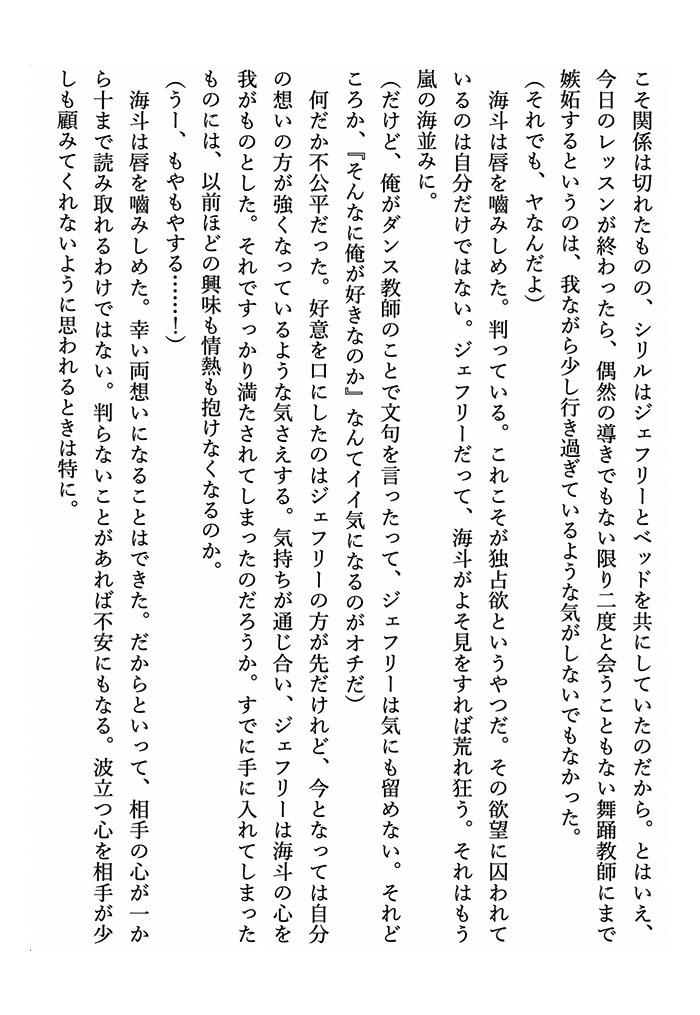 こそ関係は切れたものの、シリルはジェフリーとベッドを共にしていたのだから。とはいえ、
今日のレッスンが終わったら、偶然の導きでもない限り二度と会うこともない舞踊教師にまで
嫉妬するというのは、我ながら少し行き過ぎているような気がしないでもなかった。
(それでも、ヤなんだよ)
海斗は唇を嚙みしめた。判っている。これこそが独占欲というやつだ。その欲望に囚われて
いるのは自分だけではない。ジェフリーだって、海斗がよそ見をすれば荒れ狂う。それはもう
嵐の海並みに。
(だけど、俺がダンス教師のことで文句を言ったって、ジェフリーは気にも留めない。それど
ころか、『そんなに俺が好きなのか』なんてイイ気になるのがオチだ)
何だか不公平だった。好意を口にしたのはジェフリーの方が先だけれど、今となっては自分
の想いの方が強くなっているような気さえする。気持ちが通じ合い、ジェフリーは海斗の心を
我がものとした。それですっかり満たされてしまったのだろうか。すでに手に入れてしまった
ものには、以前ほどの興味も情熱も抱けなくなるのか。
(うー、もやもやする……!)
海斗は唇を嚙みしめた。幸い両想いになることはできた。だからといって、相手の心が一か
ら十まで読み取れるわけではない。判らないことがあれば不安にもなる。波立つ心を相手が少
しも顧みてくれないように思われるときは特に。